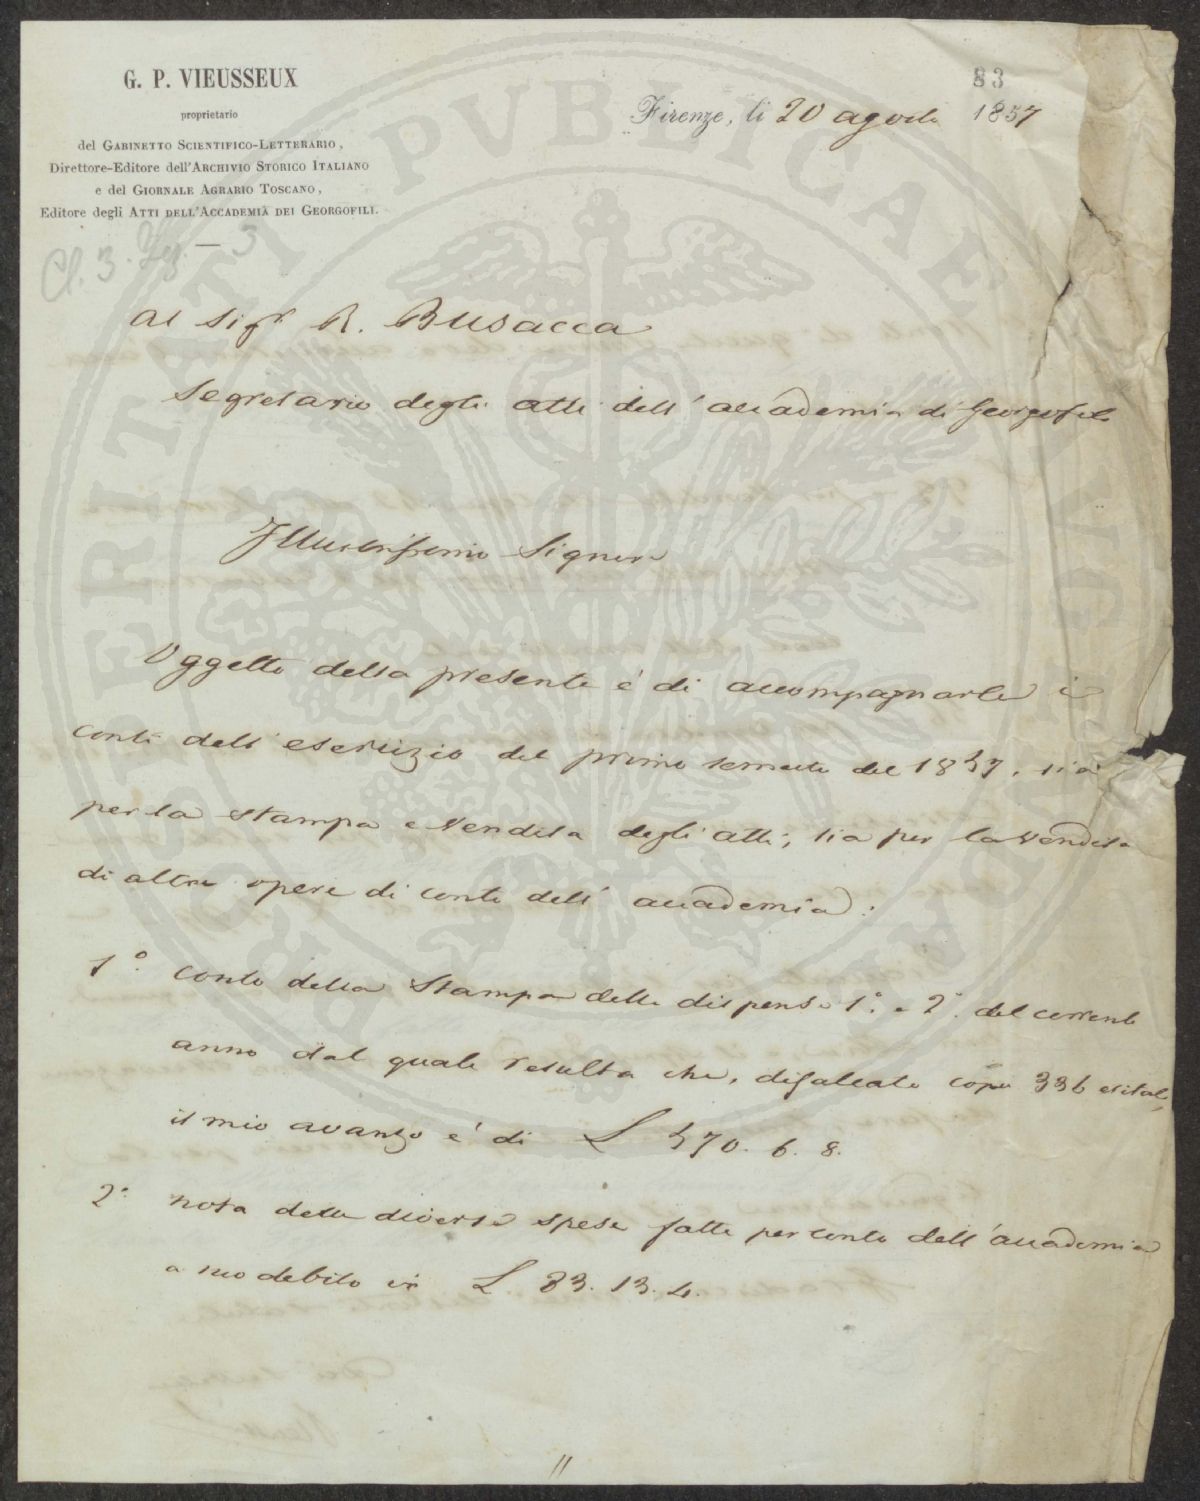 G. P. VIEUSSEUX
proprietario
del GABINETTO SCIENTIFICO-LETTERARIO,
Direttore-Editore dell'ARCHIVIO STORICO ITALIANO
e del GIORNALE AGRARIO TOSCANO,
Editore degli ATTI DELL'ACCADEMIA DEI GEORGOFILI.
83
Firenze, li 20 agosto 1857
Cl. 3. 3
Al Sigr R. Busacca
Segretario degli atti dell'accademia di Georgofili
Illustrissimo Signore
Oggetto della presente è di accompagnarle i
conti dell'esercizio del primo semestre del 1857, sia
per la stampa e vendita degli atti, sia per la vendita
di altre opere di conto dell'accademia:
1° conto della Stampa delle dispense 1° e 2° del corrente
anno dal quale resulta che, difalcate copie 336 esitate,
il mio avanzo è di L 570. 6. 8.
2° nota delle diverse spese fatte per conto dell'accademia
a suo debito in L. 83. 13. 4.
PROSPERITATI PUBLICAE AUGENDAE